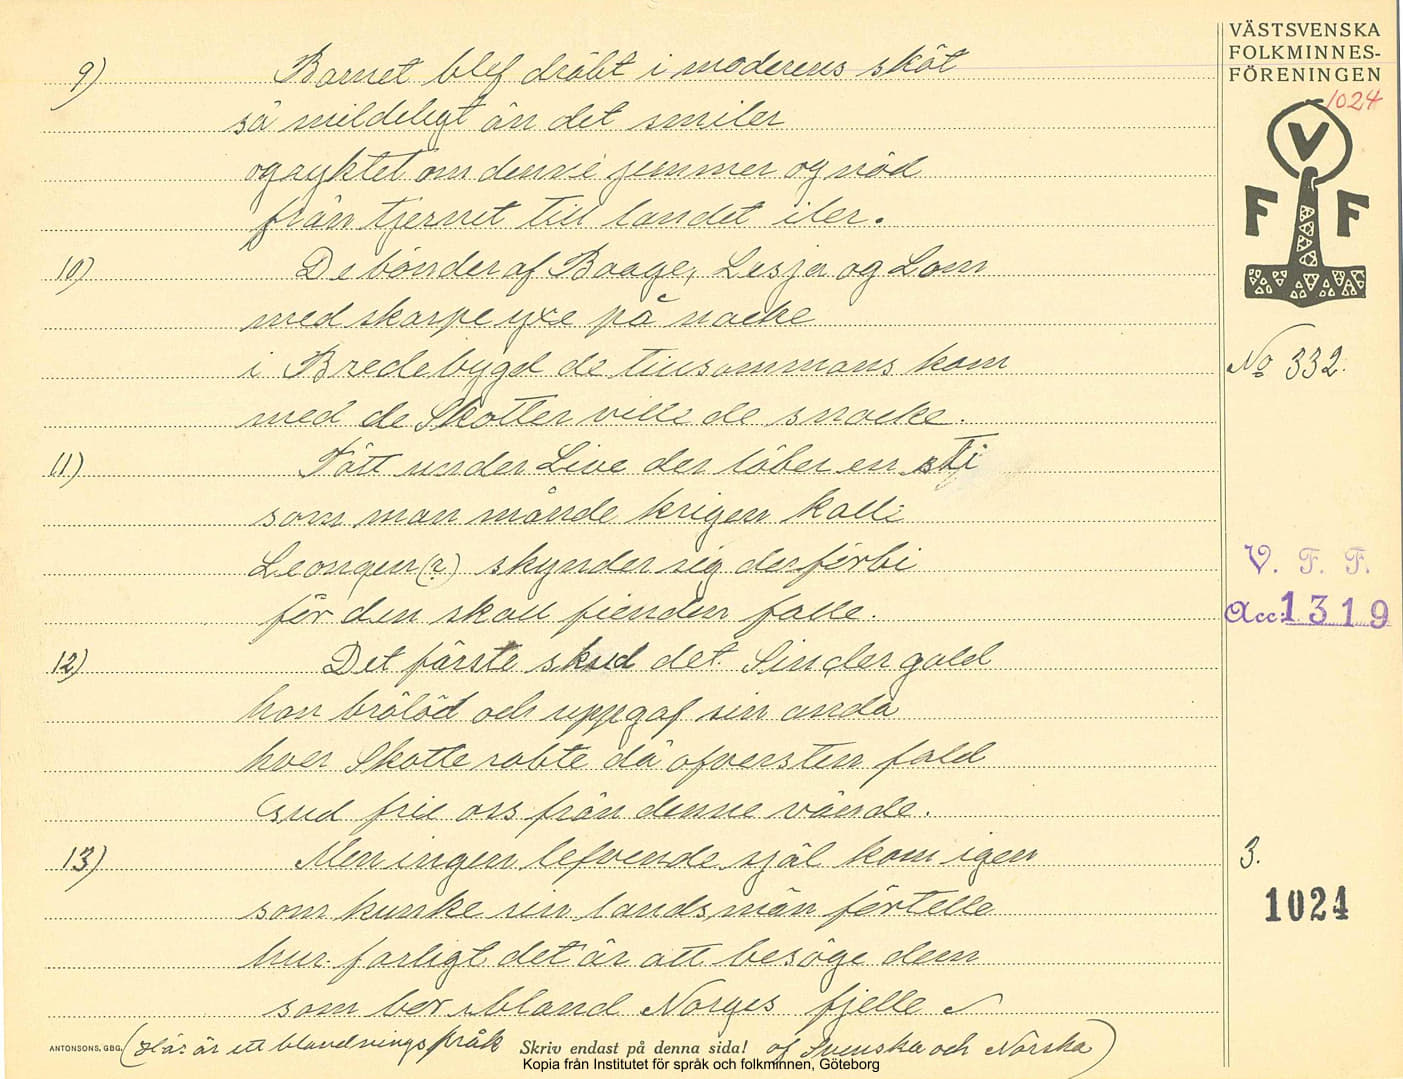 VÄSTSVENSKA
FOLKMINNES-
FÖRENINGEN
1024
V
F F
9) Barnet blef dräbt i moderens sköt
så mildeligt än det smiler
og ryktet om denne jemmer og nöd
från tjernet till landet iler.
10) De bönder af Baage, Lesja og Lom
med skarpe yxe på nacke
i Bredebygd de tilsammans kom
med de Skotter ville de snacke.
No 332.
11) Tätt under Live der löber en sti
som man månde krigen kalle
Leongen (?) skynder sig der förbi
för den skall fienden falle.
V. F. F.
Acc: 1319
12) Det färste skud det Sincler gald
han brölöd och uppgaf sin anda
hver Skotte robte då ofversten fald
Gud frie oss från denne vånde.
13) Men ingen lefvende själ kom igen
som kunke sin landsmän förtelle
hur farligt det är att besöge dem
som bor ibland Norges fjelle
3.
1024
ANTONSONS, GBG.
(Här är ett blandningsspråk af Svenska och Nårska)
Skriv endast på denna sida!
Kopia från Institutet för språk och folkminnen, Göteborg